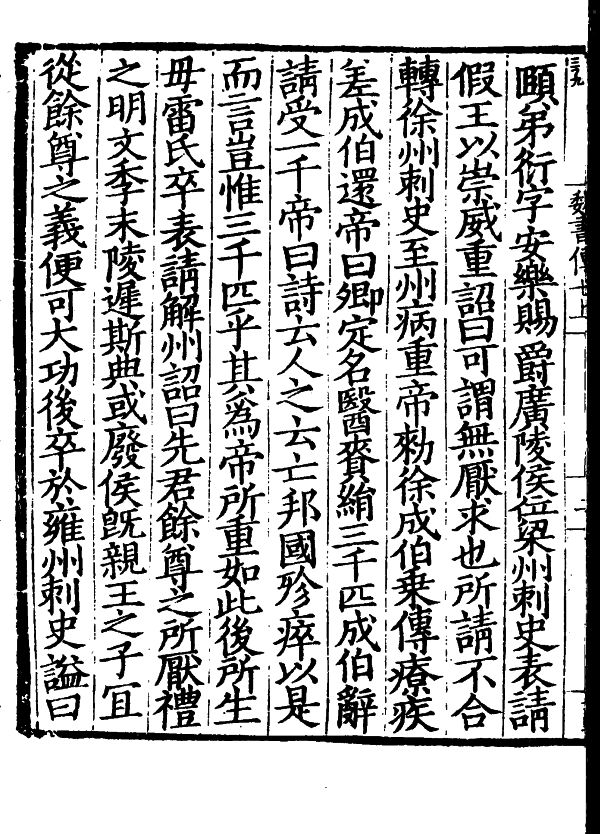 三十九
魏書傳七上
十二
頤弟衍字安樂賜爵廣陵侯位梁州刺史表請
假王以崇威重詔曰可謂無厭求也所請不合
轉徐州刺史至州病重帝勑徐成伯乗傳療疾
差成伯還帝曰卿定名醫賚絹三千匹成伯辭
請受一千帝曰詩云人之云亡邦國殄瘁以是
而言豈惟三千匹乎其爲帝所重如此後所生
毋雷氏卒表請解州詔曰先君餘尊之所厭禮
之明文季末陵遲斯典或廢侯旣親王之子冝
從餘尊之義便可大功後卒於雍州刺史謚曰